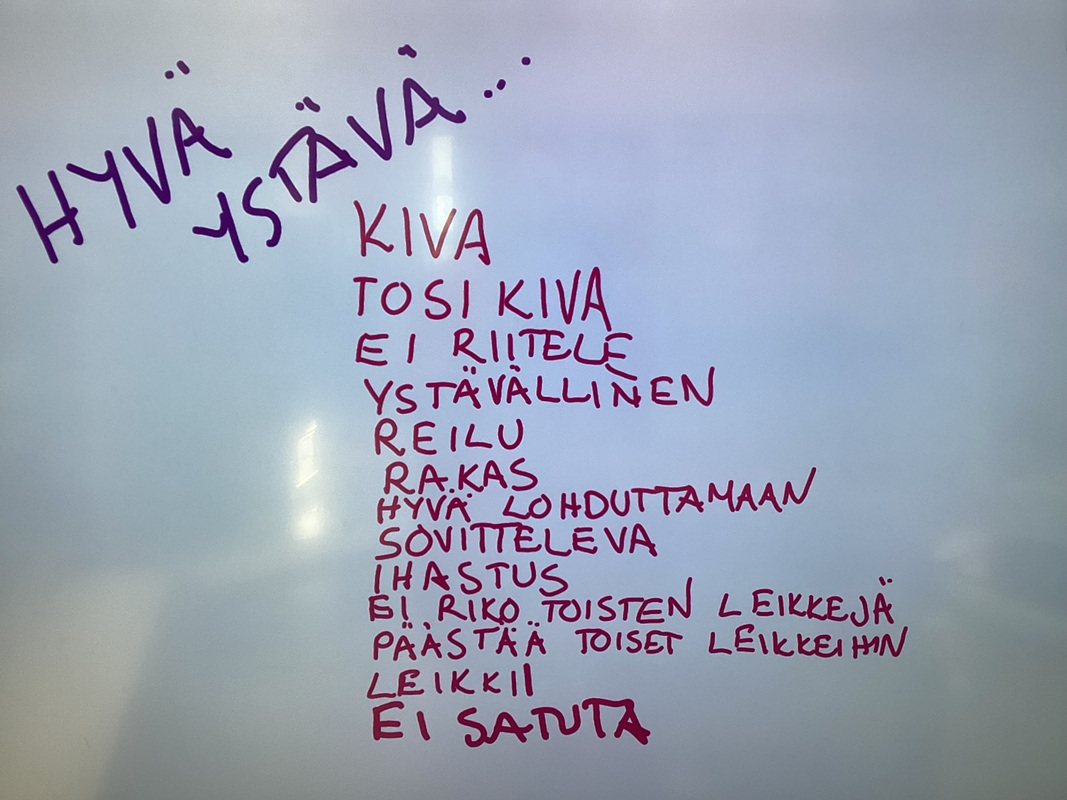 HYVÄ
YSTÄVÄ...
KIVA
TOSI KIVA
EI RIITELE
YSTÄVÄLLINEN
REILU
RAKAS
HYVÄ LOHDUTTAMAAN
SOVITTELEVA
IHASTUS
EI RIKO TOISTEN LEIKKEJÄ
PÄÄSTÄÄ TOISET LEIKKEIHIN
LEIKKII
EI SATUTA